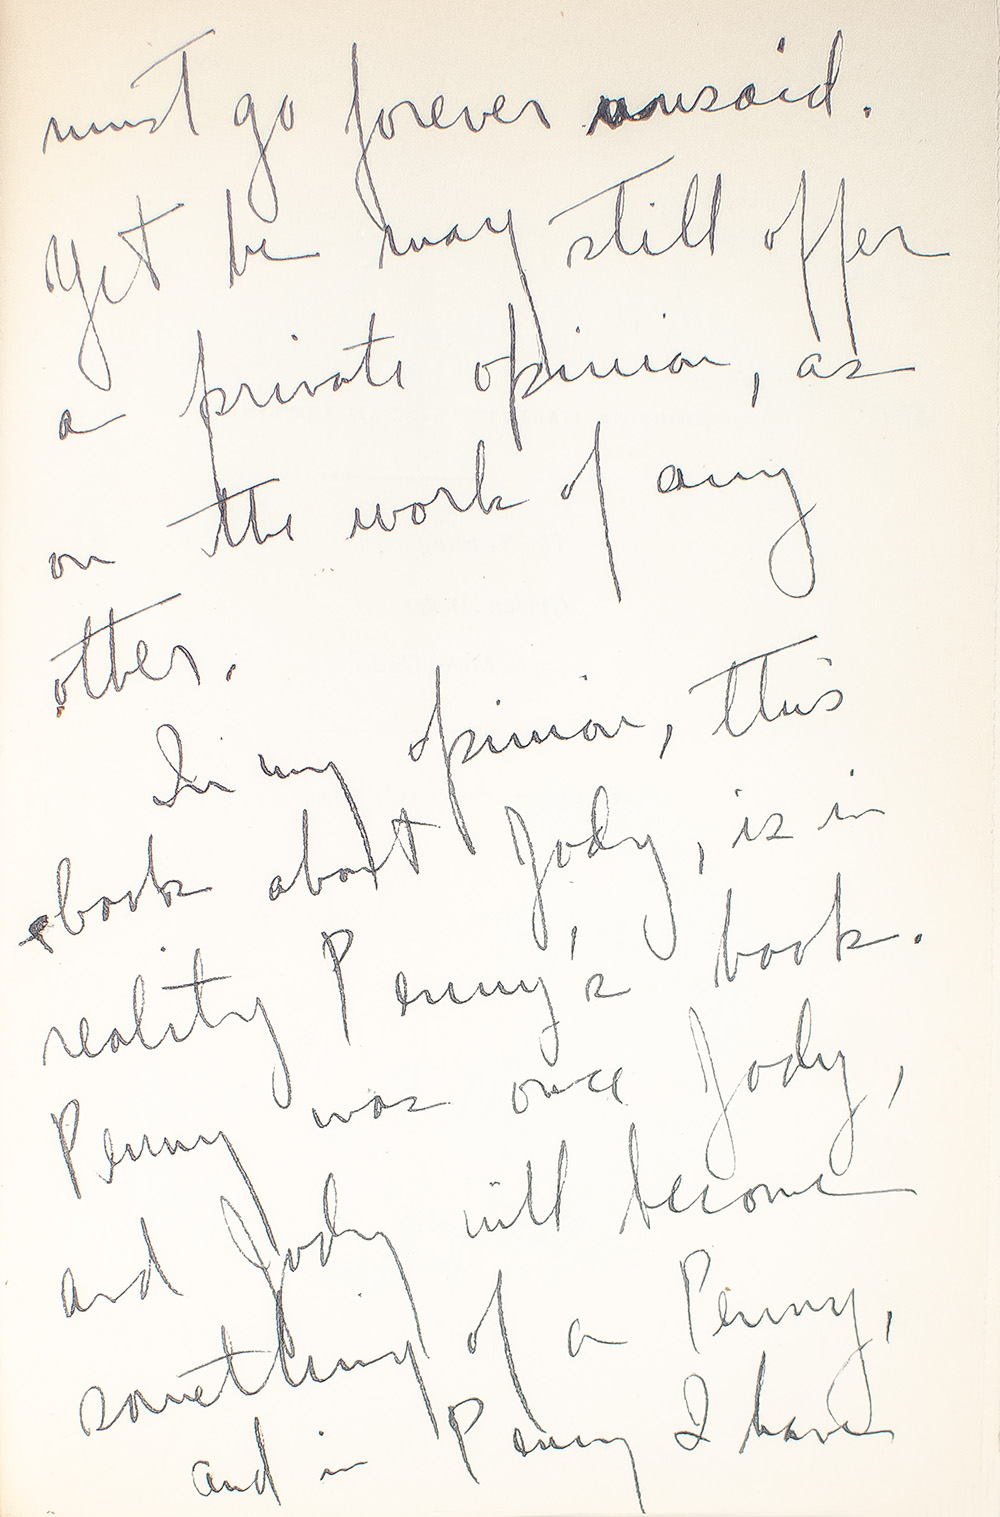 must go forever unsaid.
Yet he may still offer
a private opinion, as
on the work of any
other.
In my opinion, this
book about Jody, is in
reality Penny's book.
Penny was once Jody,
and Jody will become
something of a Penny,
and in Penny I have